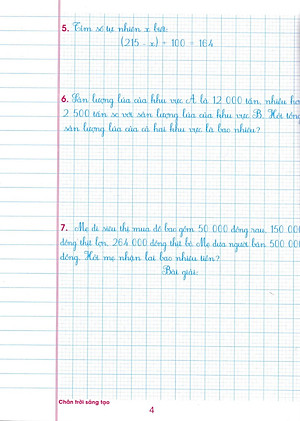 5. Tìm số tự nhiên x biết:
(215 - x) + 100 = 164
6. Sản lượng lúa của khu vực A là 12 000 tấn, nhiều hơn
2 500 tấn so với sản lượng lúa của khu vực B. Hỏi tổng
sản lượng lúa của cả hai khu vực là bao nhiêu?
7. Mẹ đi siêu thị mua đồ bao gồm 50 000 đồng rau, 150 000
đồng thịt lợn, 264 000 đồng thịt bò. Mẹ đưa người bán 500 000
đồng. Hỏi mẹ nhận lại bao nhiêu tiền?
Bài giải:
Chân trời sáng tạo
4